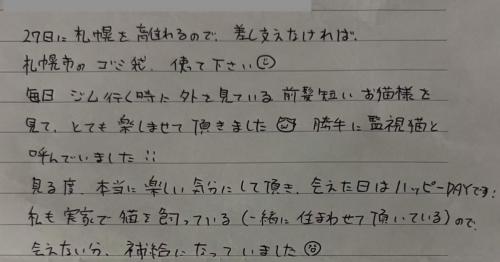 27日に札幌を離れるので、差し支えなければ、
札幌市のゴミ袋、使って下さい
毎日 ジム行く時に外を見ている 前髪短い お猫様を
見て、とても 楽しませて頂きました 勝手に監視猫と
呼んでいました
見る度、本当に楽しい気分にして頂き、会えた日はハッピーDAYです!
私も実家で猫を飼っている(一緒に住まわせて頂いている)ので、
会えない分、補給になっていました